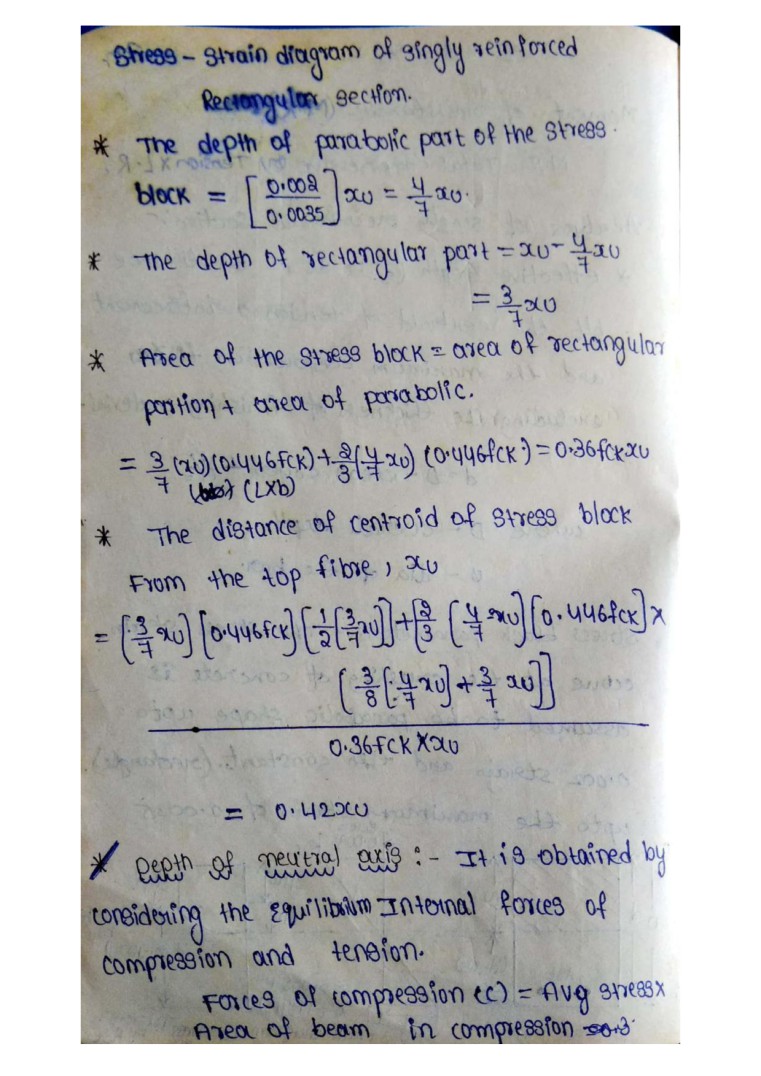 Stress - Strain diagram of singly reinforced
Rectangular section.
* The depth of parabolic part of the stress.
block = [0.002/0.0035] xu = 4/7 xu.
* The depth of rectangular part = xu - 4/7 xu
= 3/7 xu
* Area of the stress block = area of rectangular
portion + area of parabolic.
= 3/7 (xu)(0.446fck) + 2/3 (4/7 xu) (0.446fck) = 0.36fck xu
(L×b)
* The distance of centroid of stress block
From the top fibre, xu
= [3/7 xu] [0.446fck] [1/2 [3/7 xu]] + [2/3 [4/7 xu] [0.446fck] ×
[3/8 [4/7 xu] + 3/7 xu]]
0.36fck × xu
= 0.42xu
* Depth of neutral axis :- It is obtained by
considering the Equilibrium Internal forces of
compression and tension.
Forces of compression (c) = Avg stress×
Area of beam in compression